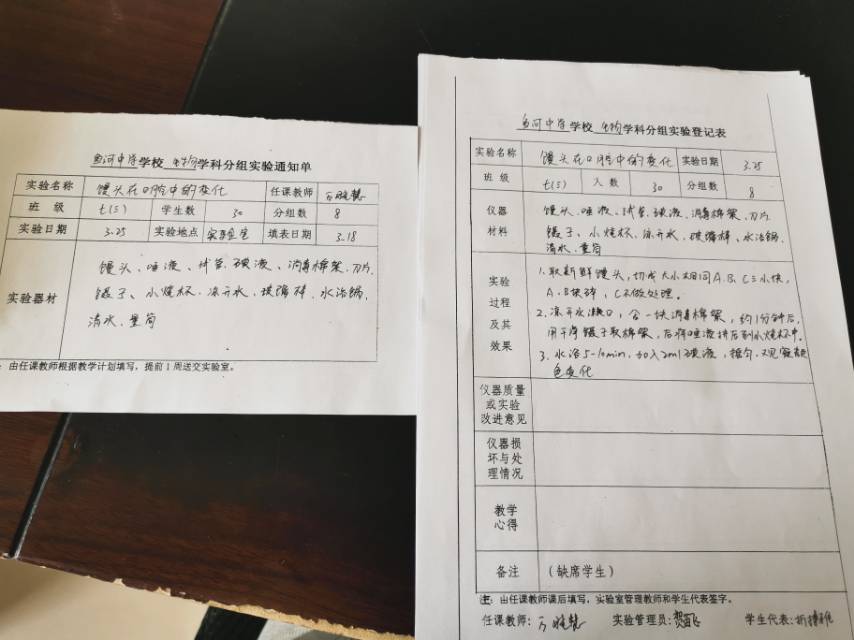 鱼河中学学校 生物学科分组实验通知单
实验名称 馒头在口腔中的变化 任课教师
班 级 七(5) 学生数 30 分组数 8
实验日期 3.25 实验地点 实验室 填表日期 3.18
实验器材
馒头、唾液、试管、碘液、消毒棉絮、刀片
镊子、小烧杯、凉开水、玻璃棒、水浴锅,
清水、量筒
:由任课教师根据教学计划填写,提前1周送交实验室。
鱼河中学学校 生物学科分组实验登记表
实验名称 馒头在口腔中的变化 实验日期 3.25
班 级 七(5) 人 数 30 分组数 8
仪器材料
馒头、唾液、试管、碘液、消毒棉絮、刀片
镊子、小烧杯、凉开水、玻璃棒、水浴锅
清水、量筒
实验过程及其效果
1.取新鲜馒头,切成大小相同A、B、C三小块,
A、B块碎,C不做处理。
2.凉开水漱口,含一块消毒棉絮,约1分钟后,
用干净镊子取棉絮,后将唾液挤后到小烧杯中。
3.水浴5-10min,加入2ml碘液,摇匀,观察颜
色变化
仪器质量或实验改进意见
仪器损坏与处理情况
教学心得
备注 (缺席学生)
注:由任课教师课后填写,实验室管理教师和学生代表签字。
任课教师: 实验管理员: 学生代表: